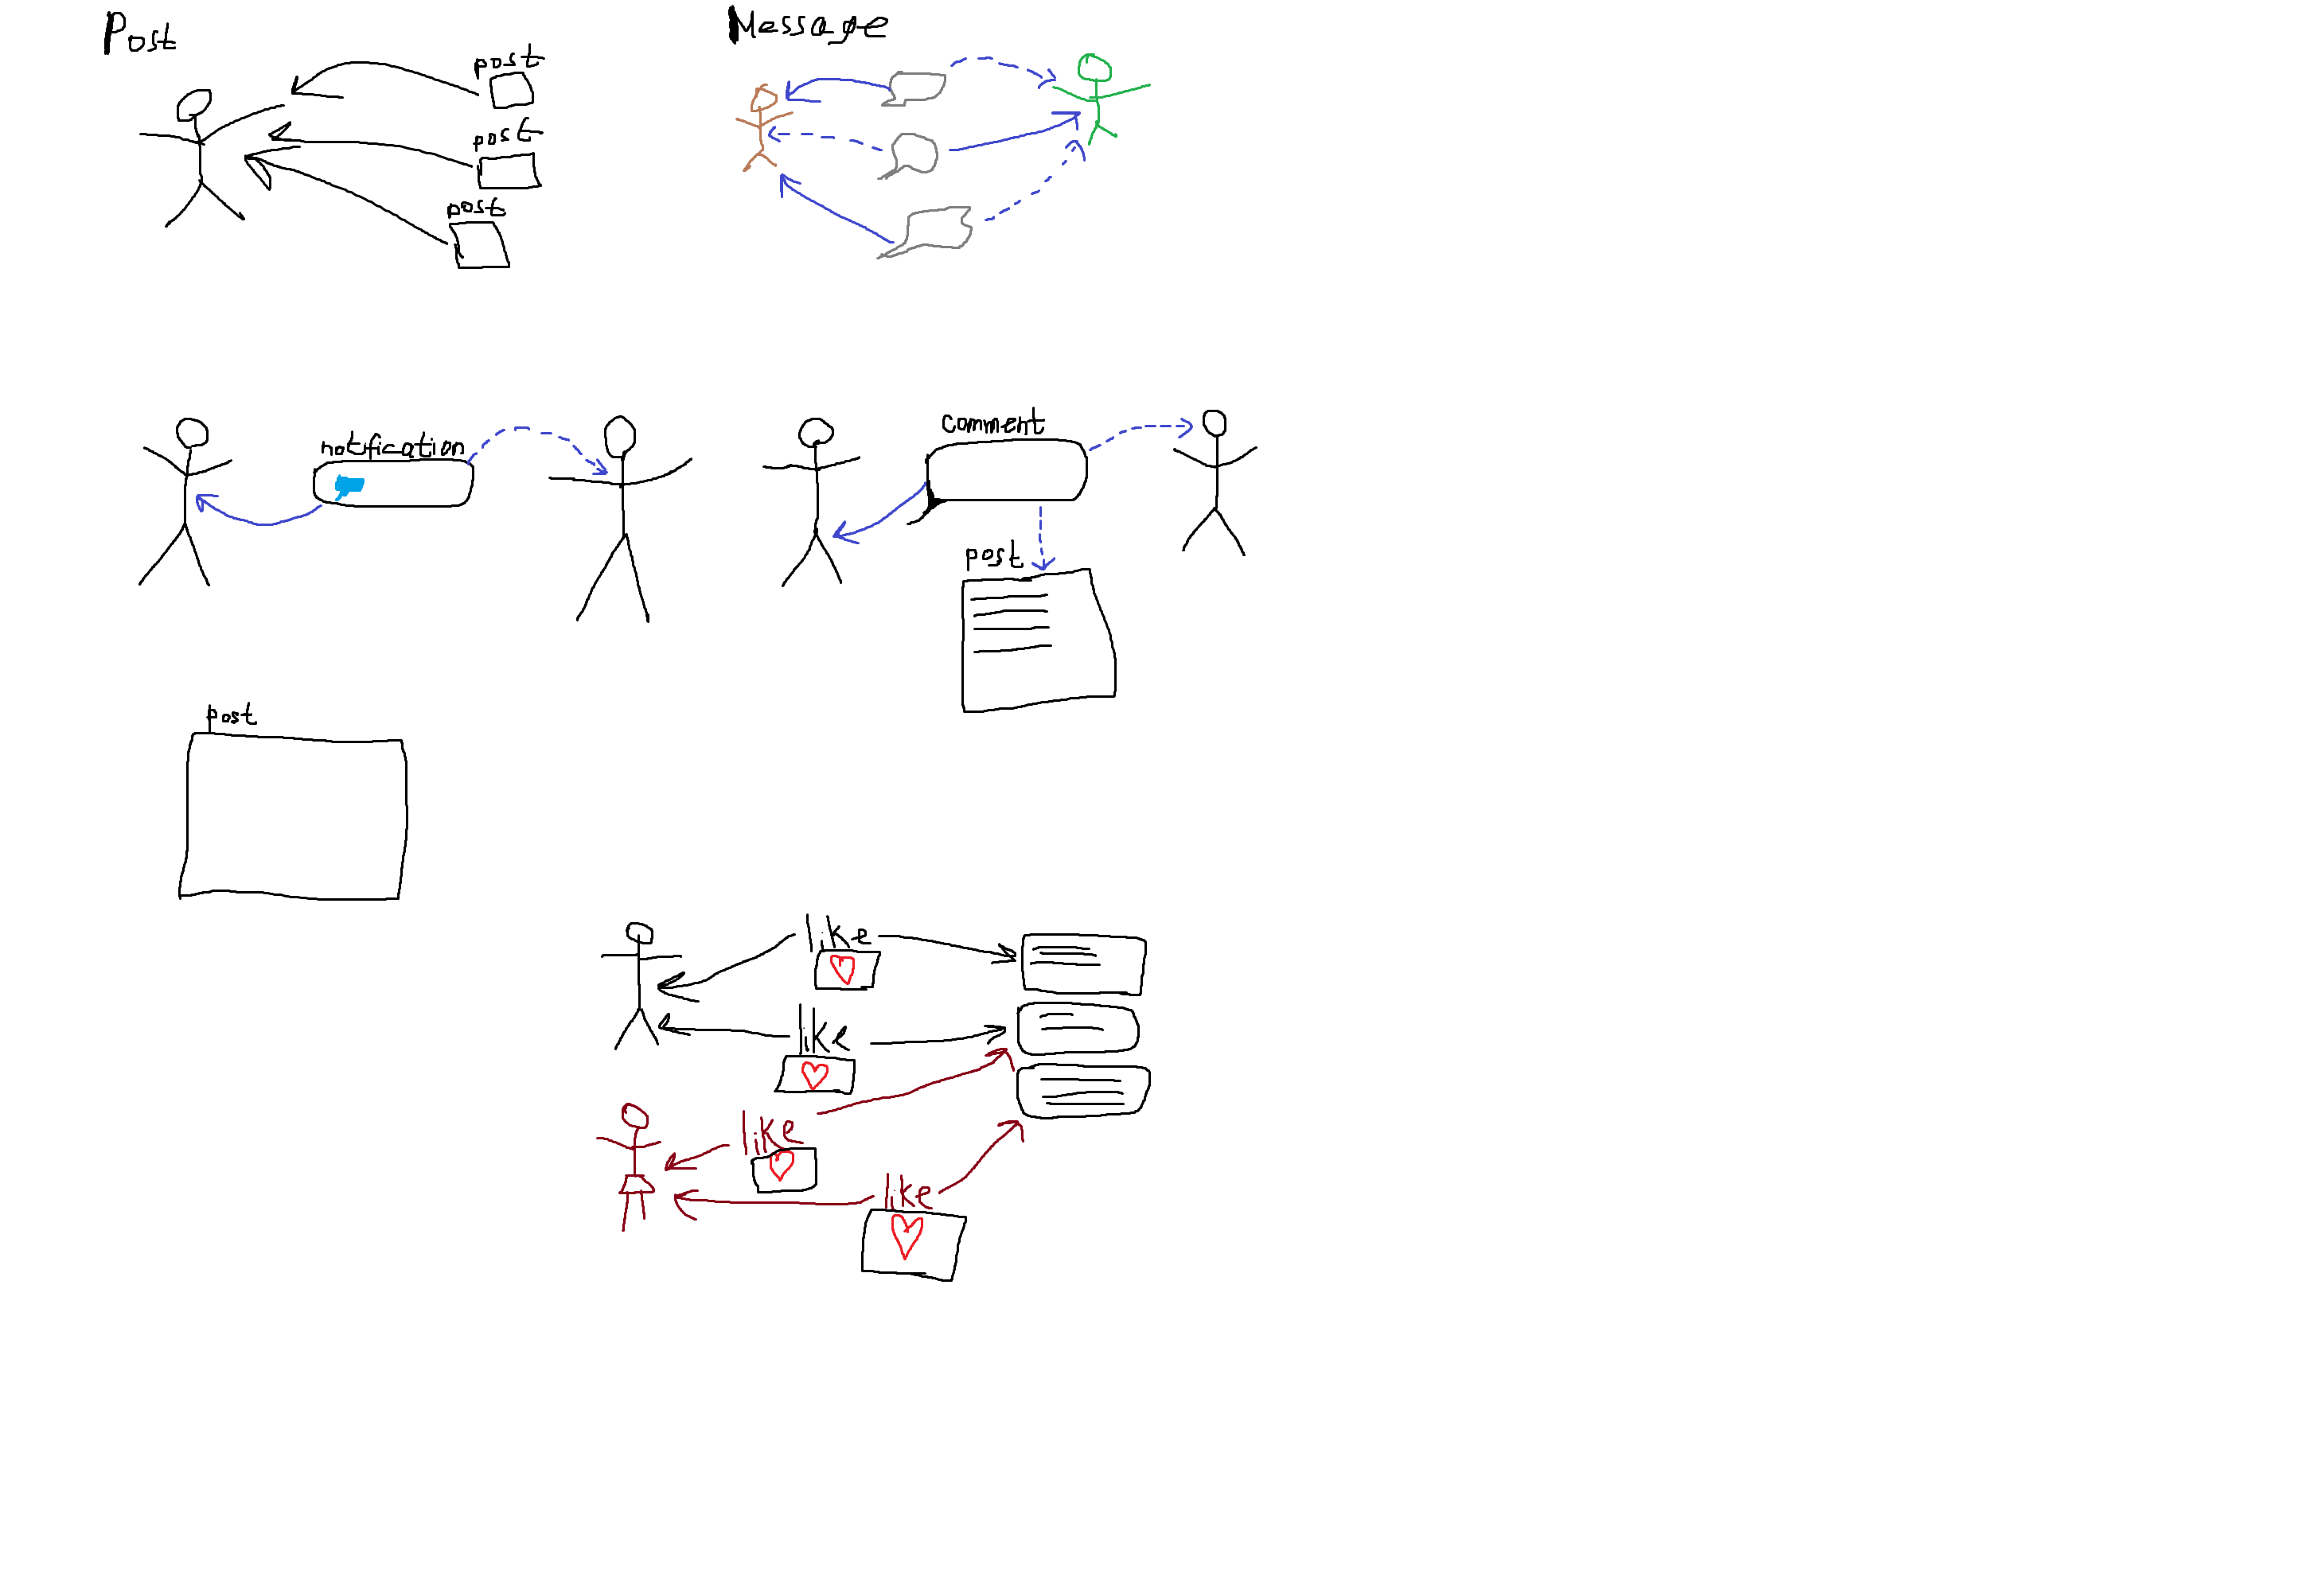 Post
Message
post
post
post
notification
comment
post
post
like
like
like
like